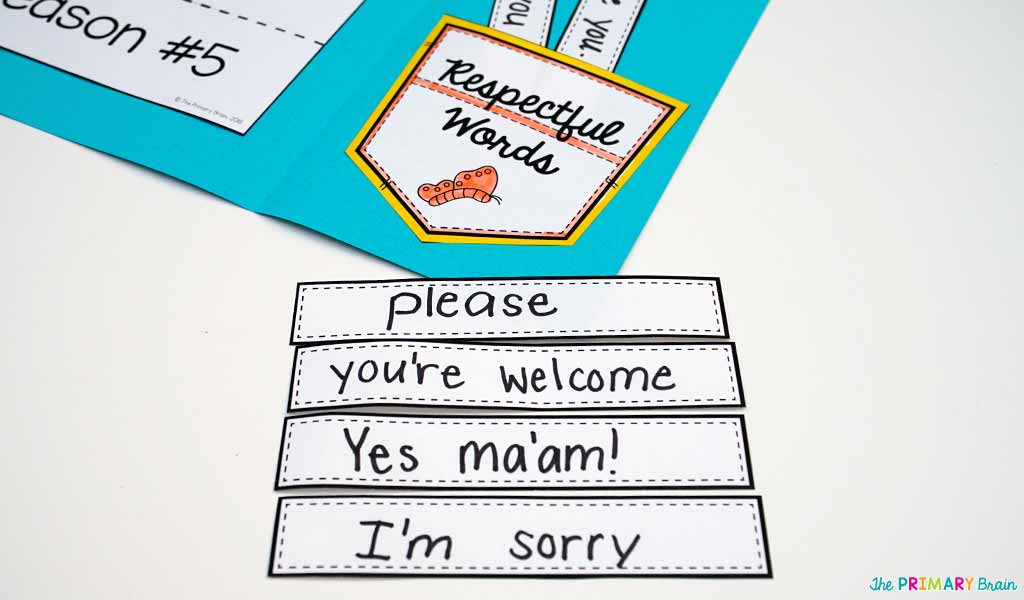 eason #5
© The Primary Brain, 2018
you
e you.
Respectful
Words
please
you're welcome
Yes ma'am!
I'm sorry
The PRIMARY Brain